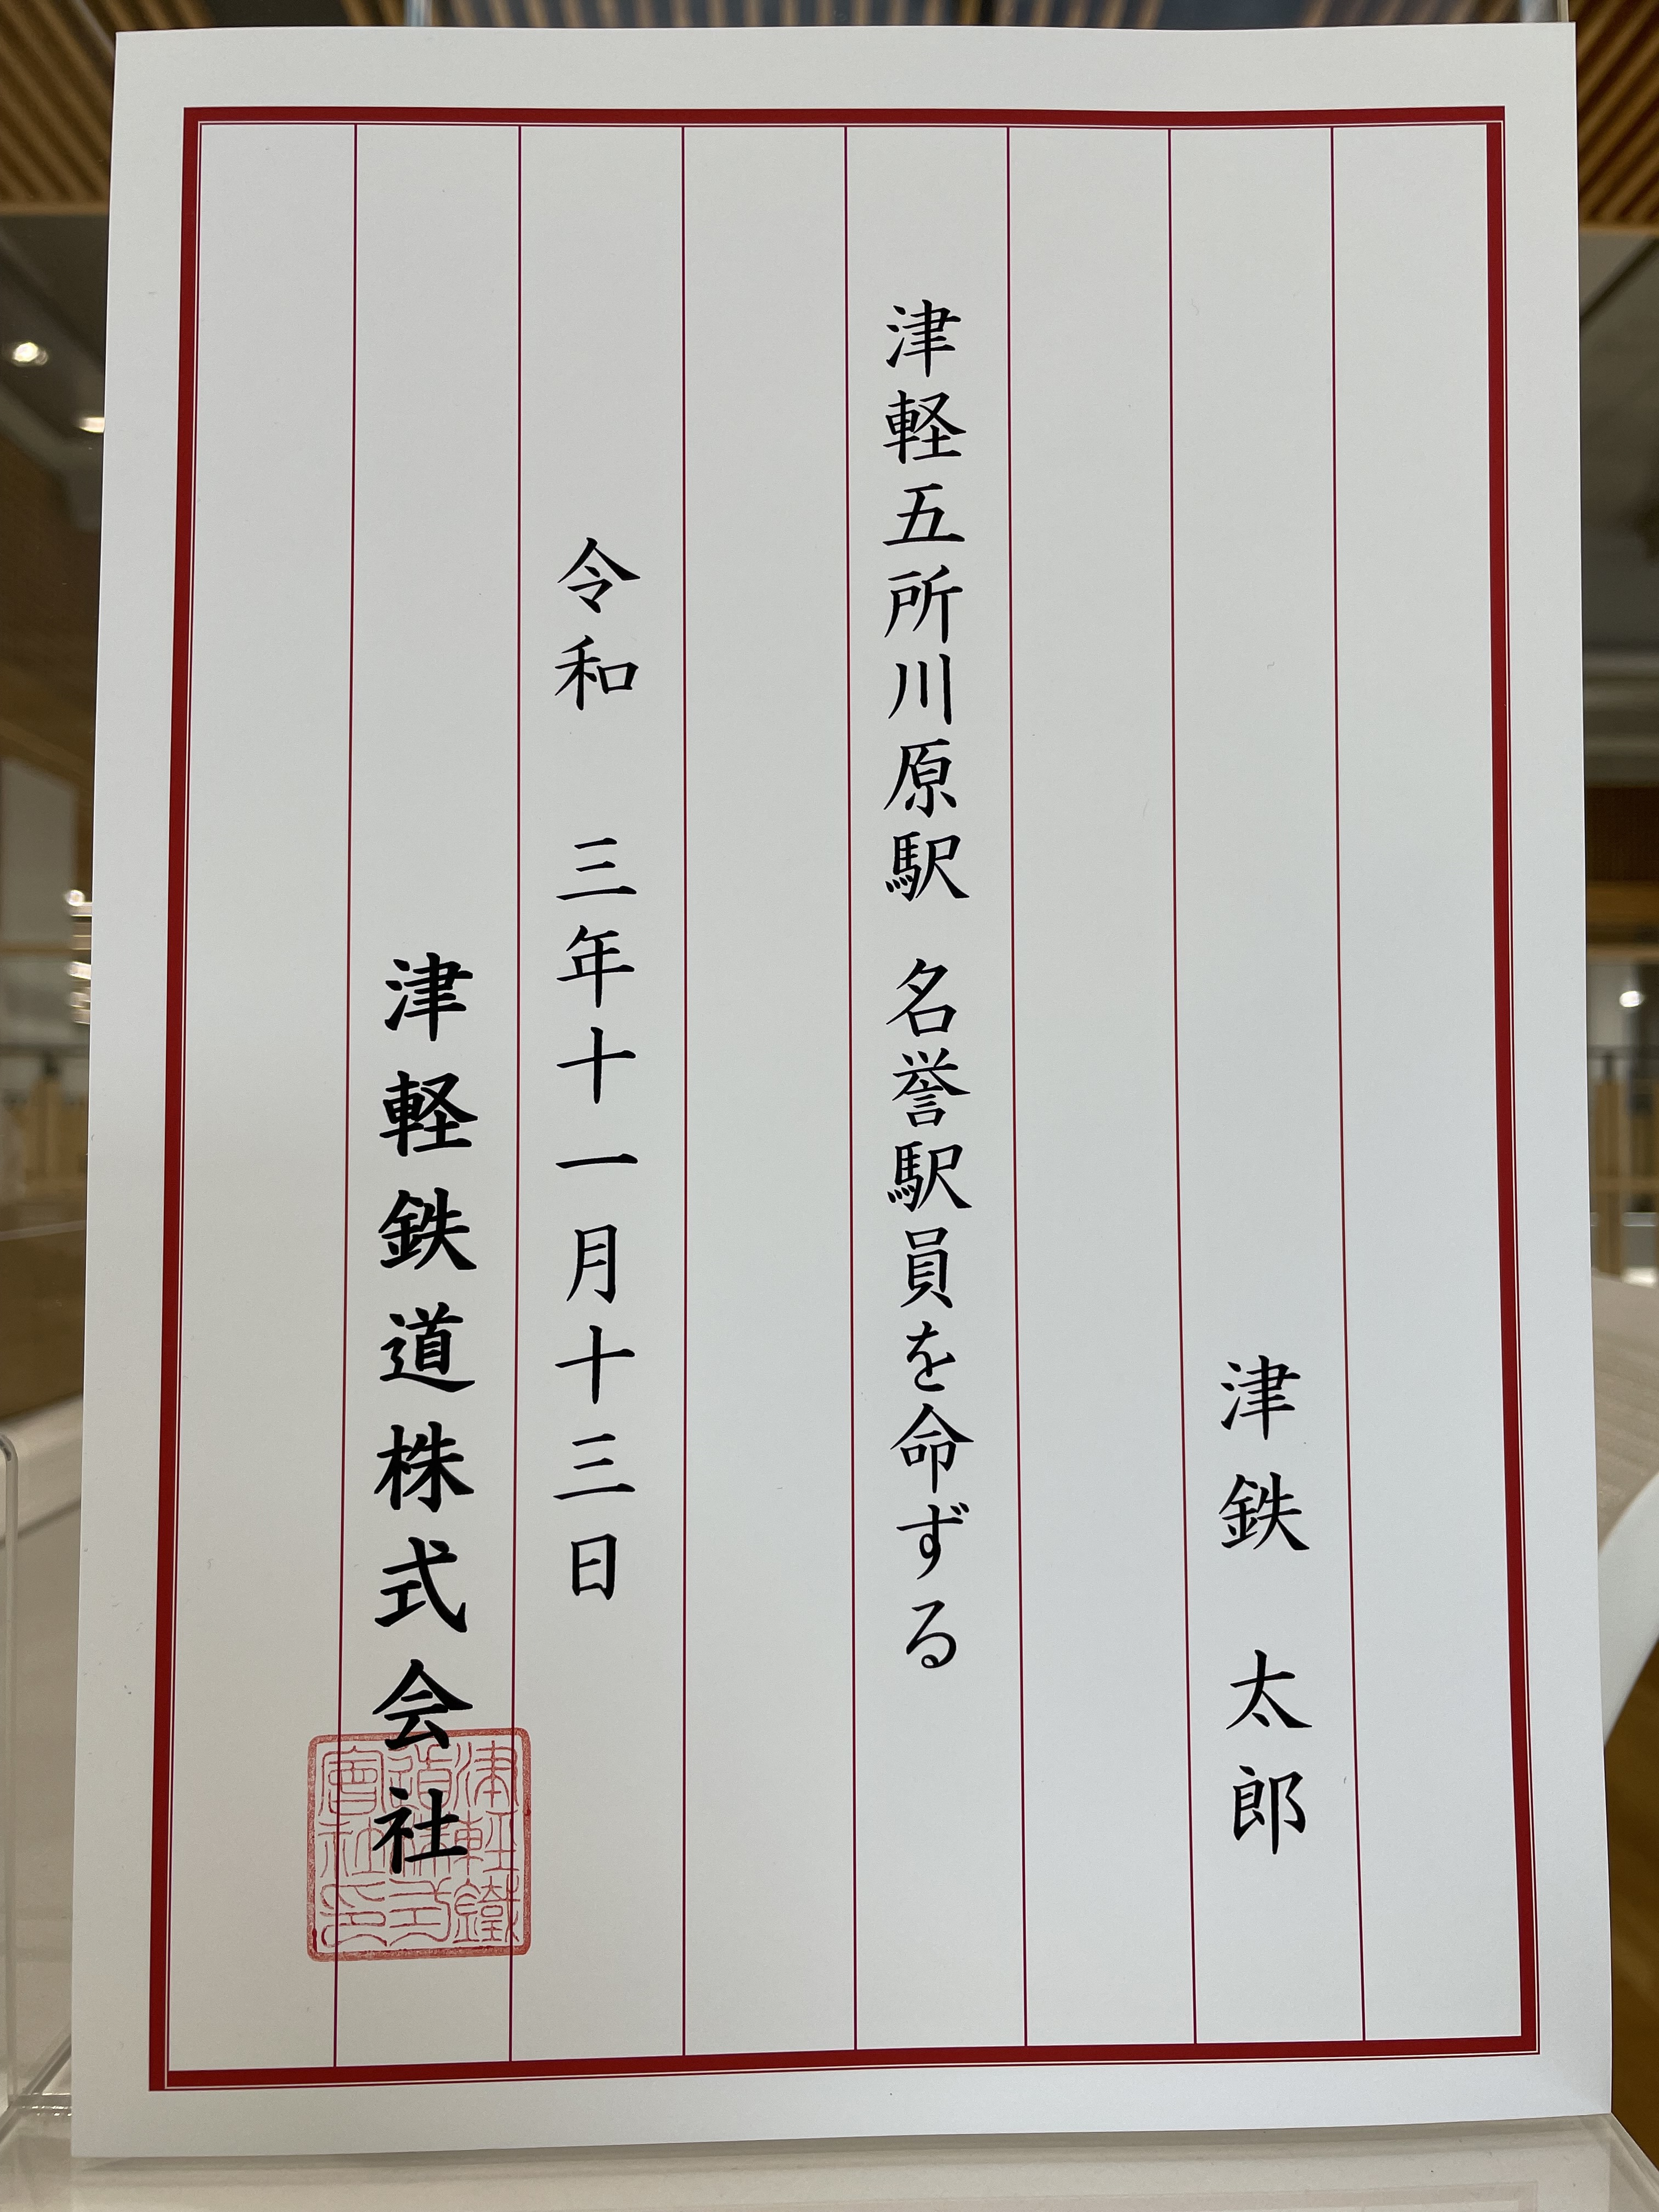 津鉄 太郎
津軽五所川原駅 名誉駅員を命ずる
令和 三年十一月十三日
津軽鉄道株式会社
津軽鐵
道株式
會社印